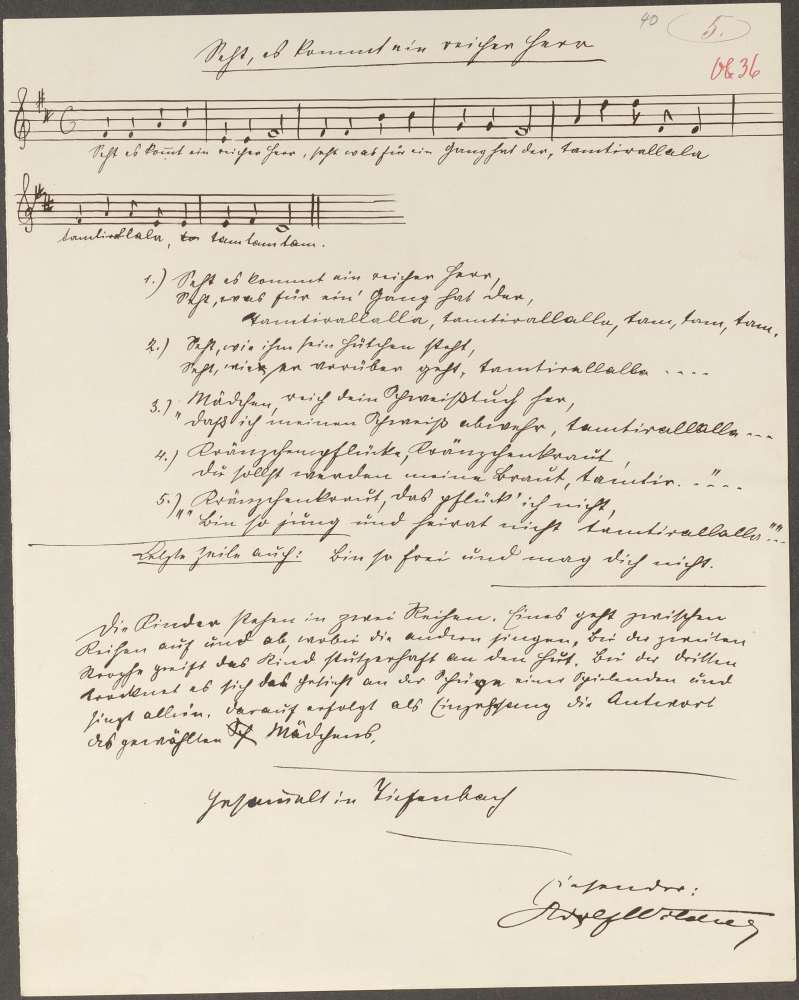 40 5.
VI 36
Seht, es kommt ein reicher Herr
Seht es kom̅t ein reicher Herr, seht was für ein Gang hat der, tamtirallala
tamtirallala, tamtamtam.
1.) Seht es kommt ein reicher Herr,
Seht, was für ein' Gang hat der,
tamtirallalla, tamtirallalla, tam, tam, tam.
2.) Seht, wie ihm sein Hütchen steht,
Seht, wie er vorüber geht, tamtirallalla ....
3.) Mädchen, reich dein Schweißtuch her,
" daß ich meinen Schweiß abwehr, tamtirallalla ---
4.) Kränzchenpflücke, Kränzchenkraut,
Du sollst werden meine Braut, tamtir. -"--
5.) Kränzchenkraut, das pflück' ich nicht,
"" Bin so jung und heirat nicht tamtirallalla ""--
Letzte Zeile auch: Bin so frei und mag dich nicht.
Die Kinder stehen in zwei Reihen. Eines geht zwischen
Reihen auf und ab, wobei die andern singen. Bei der zweiten
Strophe greift das Kind stutzerhaft an den Hut. Bei der dritten
trocknet es sich das Gesicht an der Schürze einer Spielenden und
singt allein. Darauf erfolgt als Einzelgesang die Antwort
des gewählten Mädchens.
Gesam̅elt in Tiefenbach
Einsender:
Adolf